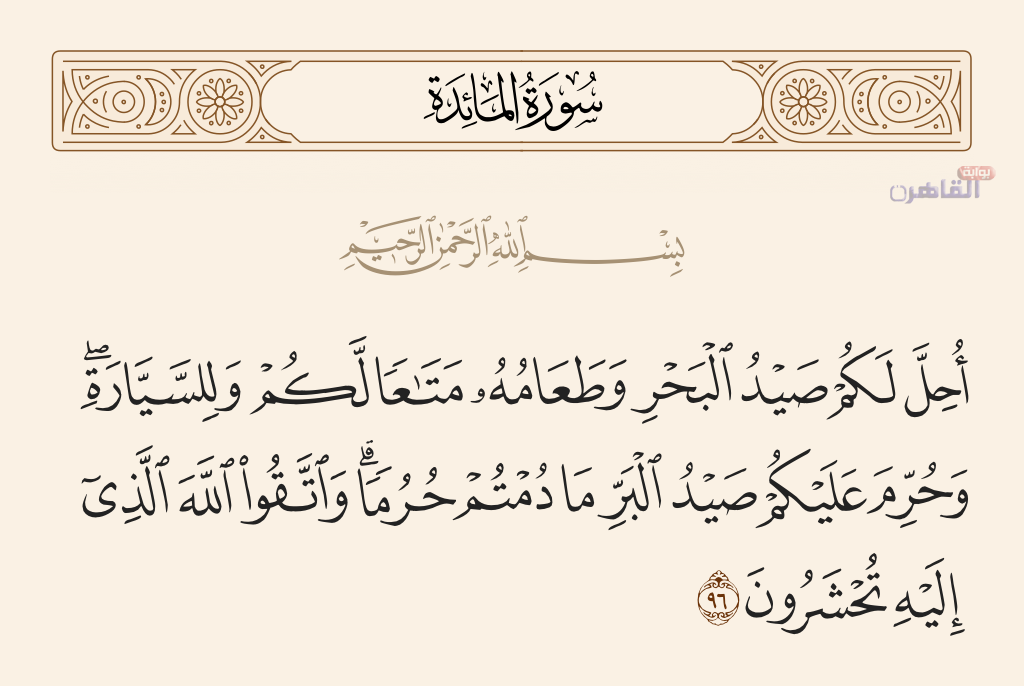 سُورَةُ المَائِدَةِ
بوابة
القاهرة
بِسْمِ ٱللَّهِ ٱلرَّحْمَٰنِ ٱلرَّحِيمِ
أُحِلَّ لَكُمْ صَيْدُ ٱلْبَحْرِ وَطَعَامُهُۥ مَتَٰعًا لَّكُمْ وَلِلسَّيَّارَةِۖ
وَحُرِّمَ عَلَيْكُمْ صَيْدُ ٱلْبَرِّ مَا دُمْتُمْ حُرُمًاۗ وَٱتَّقُوا۟ ٱللَّهَ ٱلَّذِىٓ
إِلَيْهِ تُحْشَرُونَ ٩٦